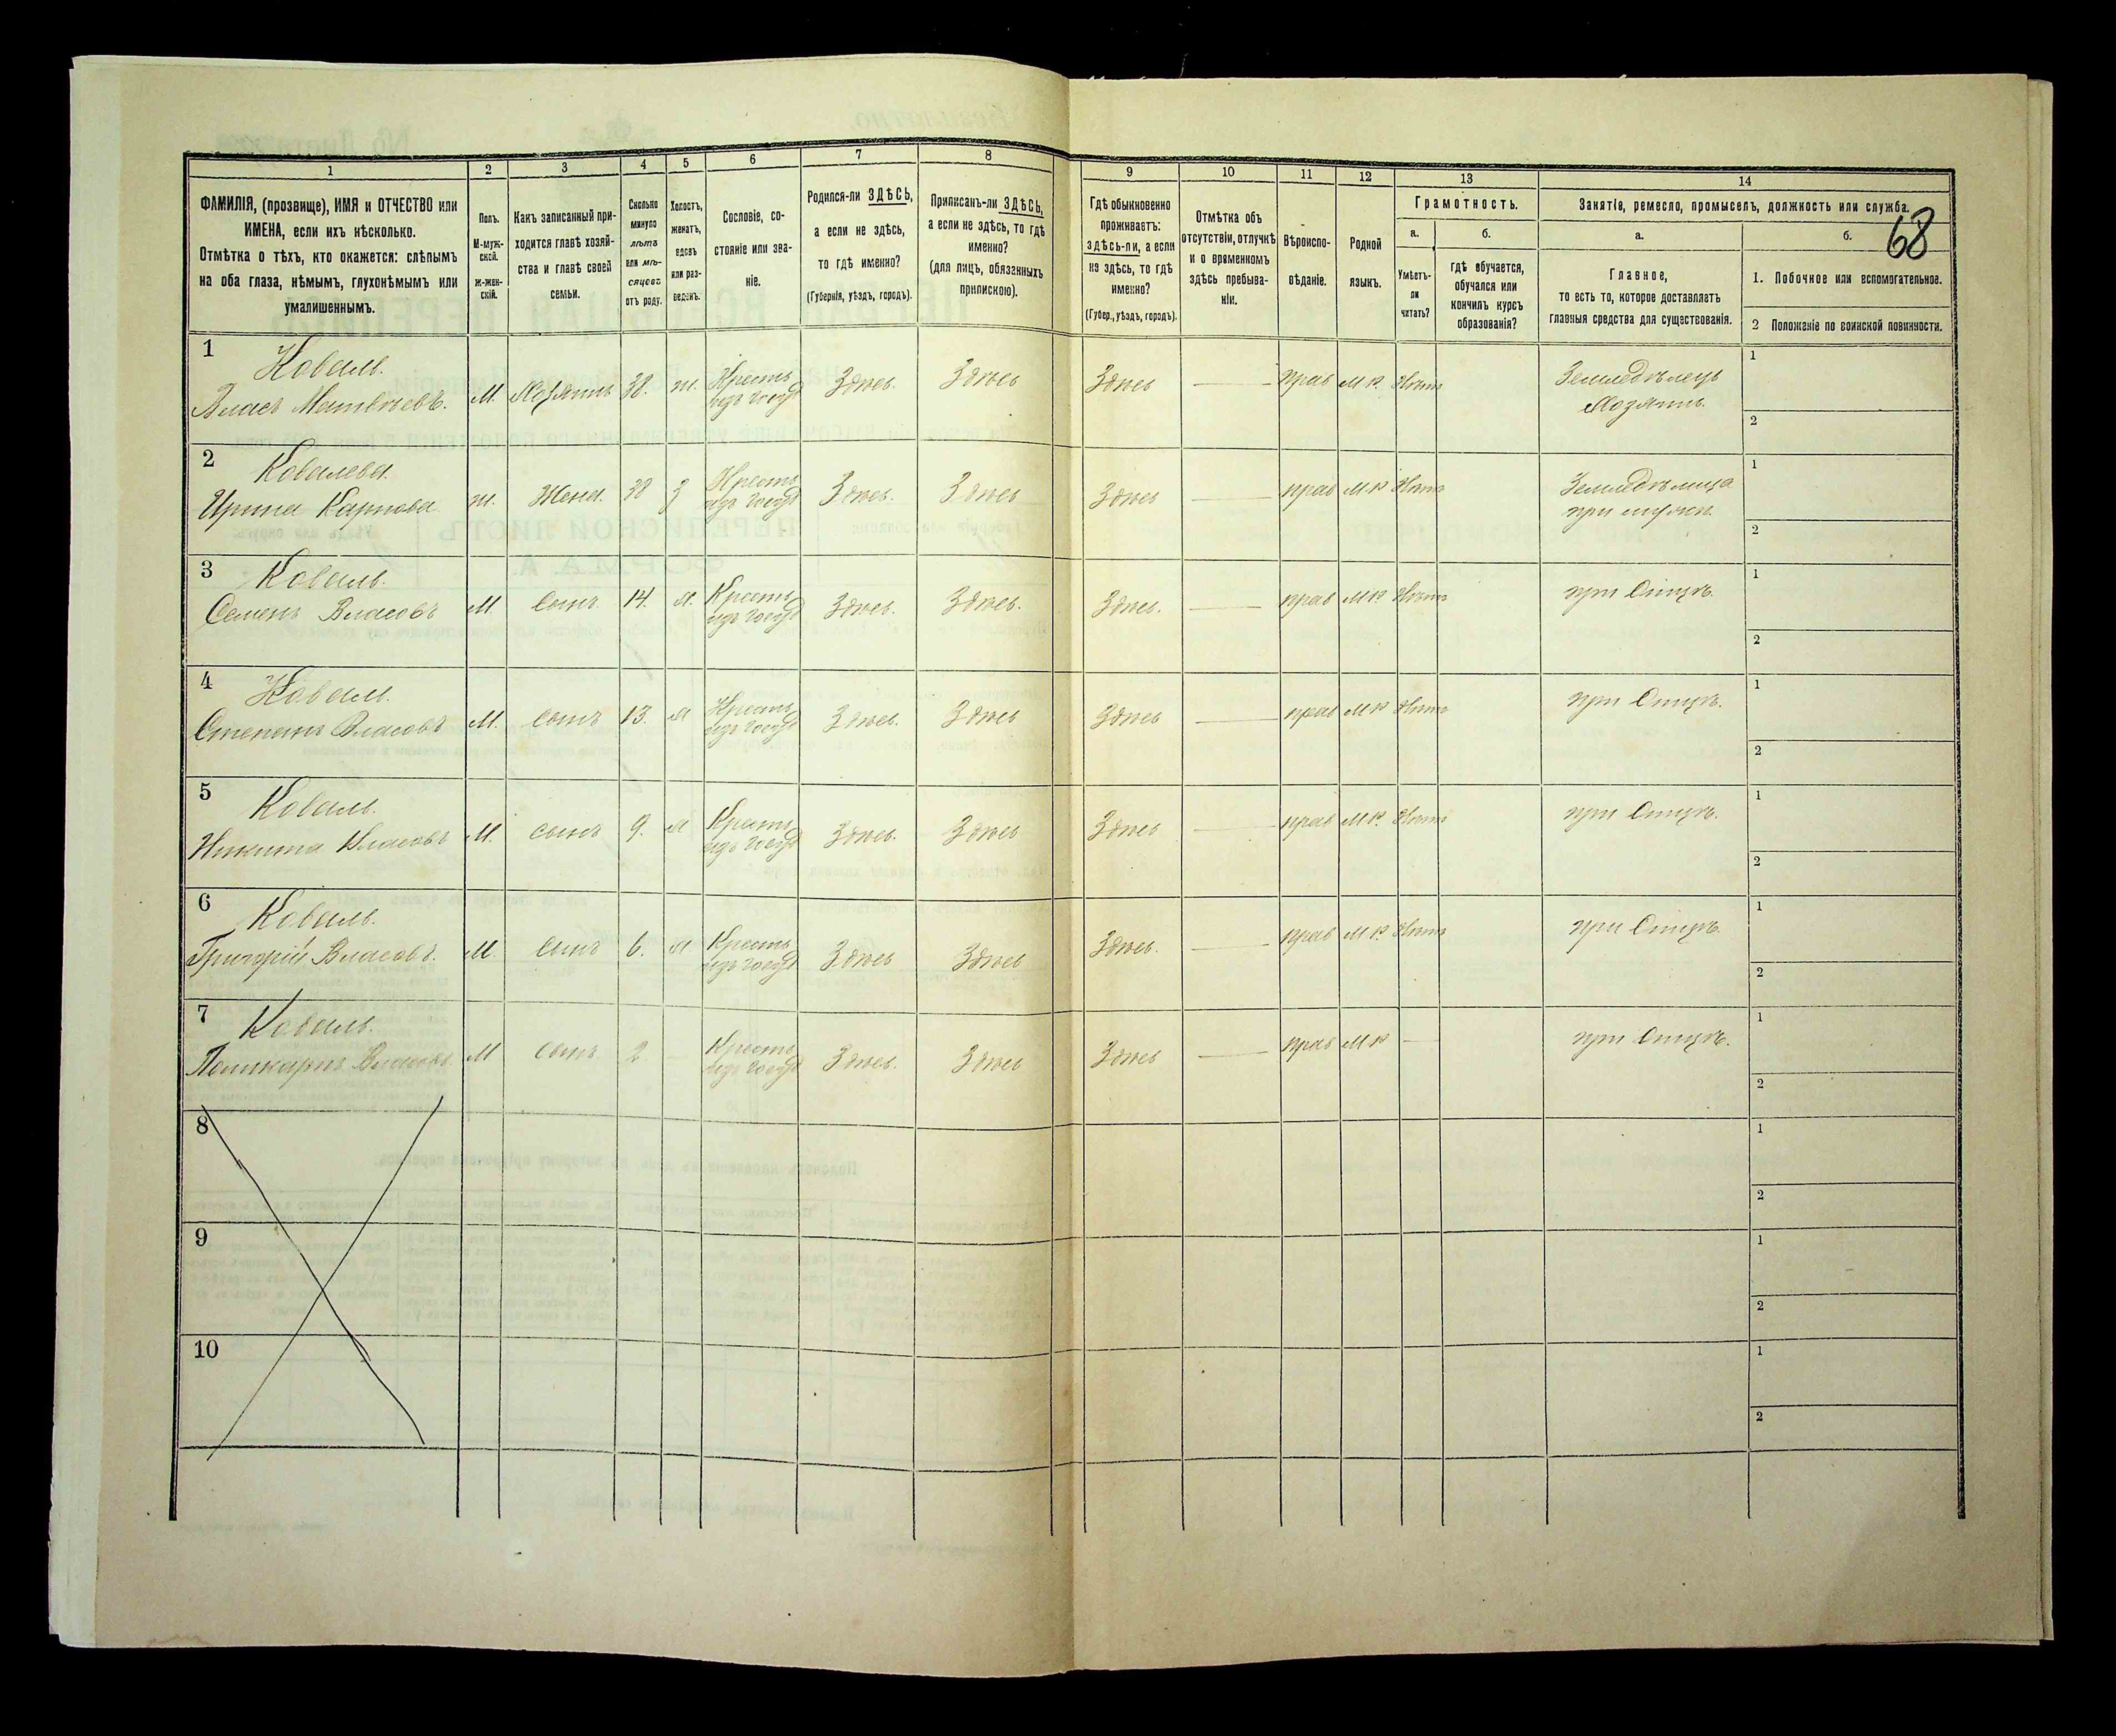 68
1
2
3
4
5
6
7
8
9
10
11
12
13
14
ФАМИЛІЯ, (прозвище), ИМЯ и ОТЧЕСТВО или
ИМЕНА, если ихъ нѣсколько.
Отмѣтка о тѣхъ, кто окажется: слѣпымъ
на оба глаза, нѣмымъ, глухонѣмымъ или
умалишеннымъ.
Полъ.
М-муж-
ской.
Ж-жен-
скій.
Какъ записанный при-
ходится главѣ хозяй-
ства и главѣ своей
семьи.
Сколько
минуло
лѣтъ
или мѣ-
сяцевъ
отъ роду.
Холостъ,
женатъ,
вдовъ
или раз-
веденъ.
Сословіе, со-
стояніе или зва-
ніе.
Родился-ли ЗДѢСЬ,
а если не здѣсь,
то гдѣ именно?
(Губернія, уѣздъ, городъ).
Приписанъ-ли ЗДѢСЬ,
а если не здѣсь, то гдѣ
именно?
(для лицъ, обязанныхъ
припискою).
Гдѣ обыкновенно
проживаетъ:
здѣсь-ли, а если
не здѣсь, то гдѣ
именно?
(Губер., уѣздъ, городъ).
Отмѣтка объ
отсутствіи, отлучкѣ
и о временномъ
здѣсь пребыва-
ніи.
Вѣроиспо-
вѣданіе.
Родной
языкъ.
Грамотность.
а.
Умѣетъ-
ли
читать?
б.
гдѣ обучается,
обучался или
кончилъ курсъ
образованія?
Занятіе, ремесло, промыселъ, должность или служба.
а.
Главное,
то есть то, которое доставляетъ
главныя средства для существованія.
б.
1. Побочное или вспомогательное.
2 Положеніе по воинской повинности.
1 Коваль.
Власъ Матвѣевъ. М. Хозяинъ 38. ж. Крестьян
изъ госуд Здѣсь. Здѣсь Здѣсь — прав М Р. Нѣтъ Земледѣлецъ
Хозяинъ.
1
2
2 Ковалева.
Ирина Карпова. ж. Жена. 38 з Крестьян
изъ госуд Здѣсь. Здѣсь Здѣсь — прав М Р Нѣтъ Земледѣлица
при мужѣ.
1
2
3 Коваль.
Семенъ Власовъ М. Сынъ 14. х. Крестьян
изъ госуд Здѣсь. Здѣсь. Здѣсь. — прав М Р Нѣтъ при Отцѣ.
1
2
4 Коваль.
Степанъ Власовъ М. Сынъ 13. х Крестьян
изъ госуд Здѣсь. Здѣсь Здѣсь — прав М Р Нѣтъ при Отцѣ.
1
2
5 Коваль.
Никита Власовъ М. сынъ 9. х Крестьян
изъ госуд Здѣсь. Здѣсь Здѣсь — прав М Р. Нѣтъ при Отцѣ.
1
2
6 Коваль.
Григорій Власовъ. М. Сынъ 6. х Крестьян
изъ госуд Здѣсь Здѣсь Здѣсь. — прав М Р. Нѣтъ при Отцѣ.
1
2
7 Коваль.
Поликарпъ Власовъ. М сынъ 2 Крестьян
изъ госуд Здѣсь. Здѣсь Здѣсь — прав М Р — при Отцѣ.
1
2
8
1
2
9
1
2
10
1
2